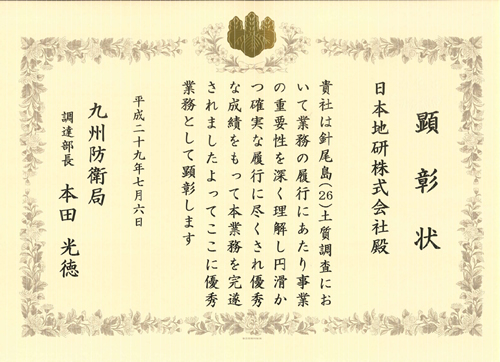 顕彰状
日本地研株式会社殿
貴社は針尾島(26)土質調査にお
いて業務の履行にあたり事業
の重要性を深く理解し円滑か
つ確実な履行に尽くされ優秀
な成績をもって本業務を完遂
されましたよってここに優秀
業務として顕彰します
平成二十九年七月六日
九州防衛局
調達部長 本田光徳